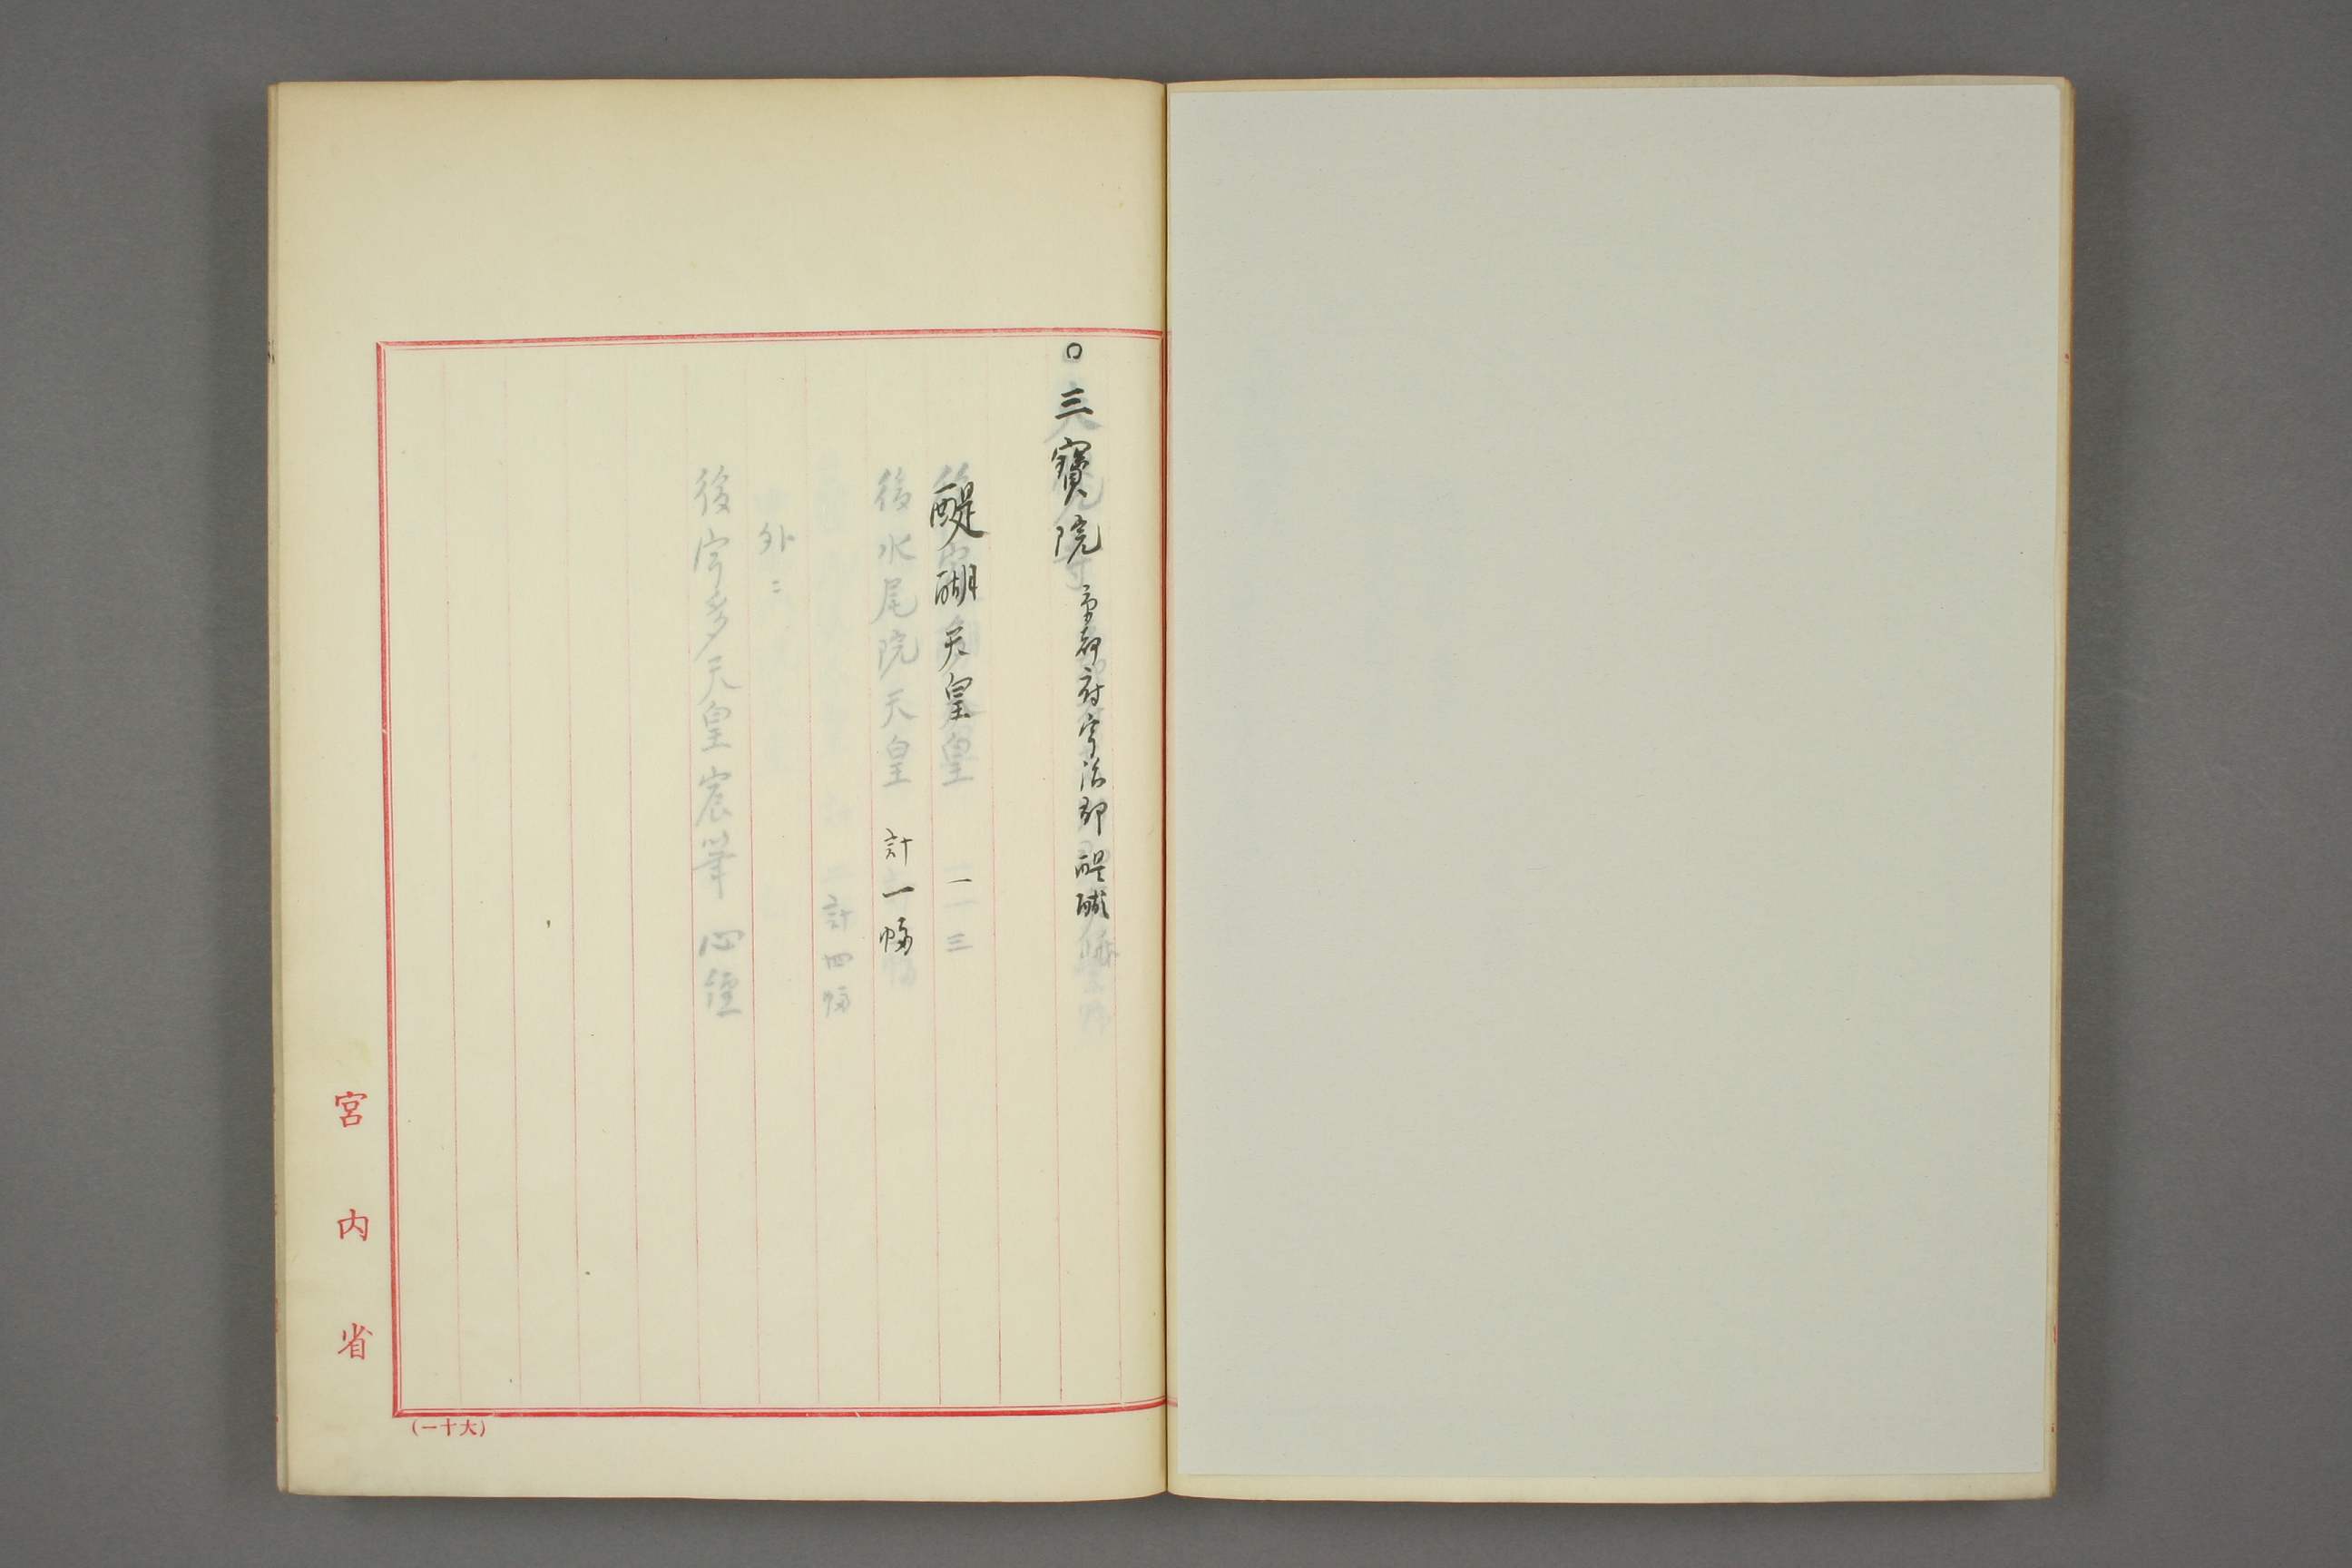 ○三寳院 京都府宇治郡醍醐
醍醐天皇 一
計一幅
後水尾院天皇
計四幅
外ニ
後宇多天皇宸筆 心經
宮内省
(一十大)